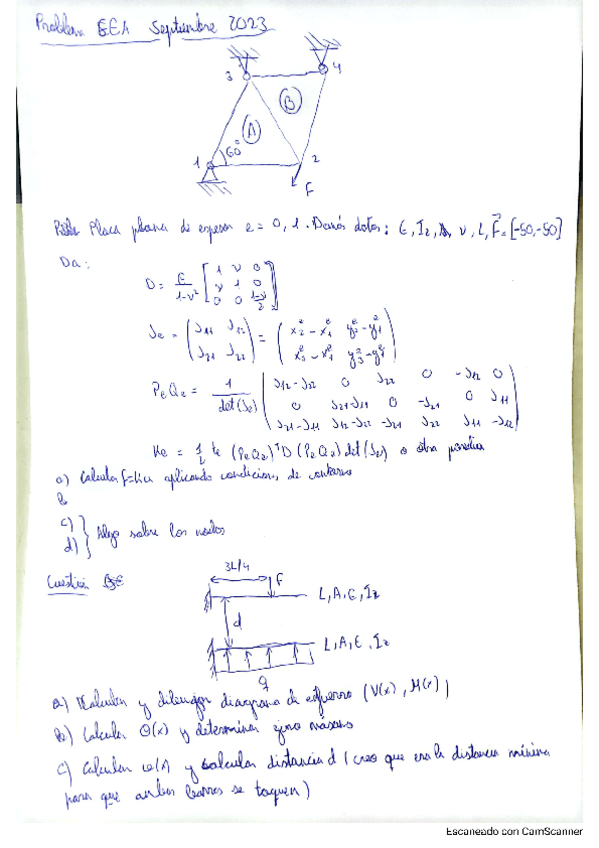 Problema EEA Septiembre 2023
3
4
B
A
60°
1
2
F
Placa plana de espesor e = 0,1. Damos datos: E, Iz, ν, L, F = [-50,-50]
Da:
D = E/1-ν² [1 ν 0
ν 1 0
0 0 1-ν/2]
Je = (J11 J12
J21 J22) = (x2^e - x1^e y2^e - y1^e
x3^e - x1^e y3^e - y1^e)
PeQe = 1/det(Je) (J12-J22 0 J22 0 -J12 0
0 J21-J11 0 -J21 0 J11
J21-J11 J12-J22 -J21 J22 J11 -J12)
Ke = 1/2 te (PeQe)^T D (PeQe) det(Je) o otra parecida
a) Calcular f=ku aplicando condiciones de contorno
b
c)
d) } Algo sobre los nodos
Cuestión
3L/4
F
L, A, E, Iz
d
L, A, E, Iz
q
a) Calcular y dibujar diagrama de esfuerzo (V(x), M(x))
b) Calcular θ(x) y determinar giro máximo
c) Calcular ω(x) y calcular distancia d (creo que era la distancia mínima
para que ambas barras se toquen)
Escaneado con CamScanner